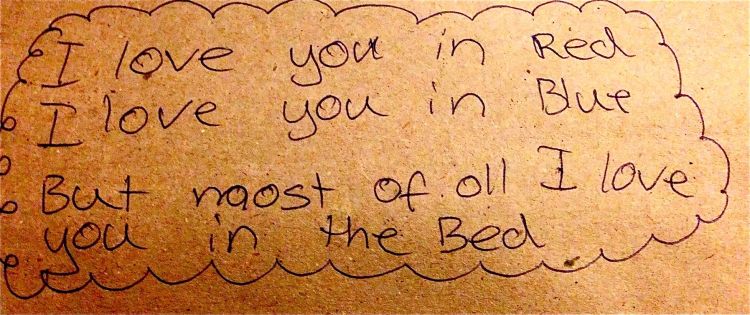 I love you in Red
I love you in Blue
But naost of oll I love
you in the Bed